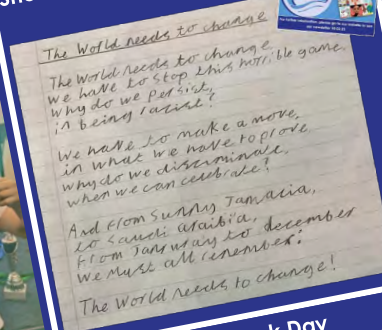 The World needs to change
The World needs to change
we have to stop this horrible game.
why do we persist,
in being racist?
We have to make a move,
in what we have to prove
why do we discriminate,
when we can celebrate?
And from sunny Jamacia,
to Saudi araibia,
From January to december
We must all remember:
The World needs to change!
k Day